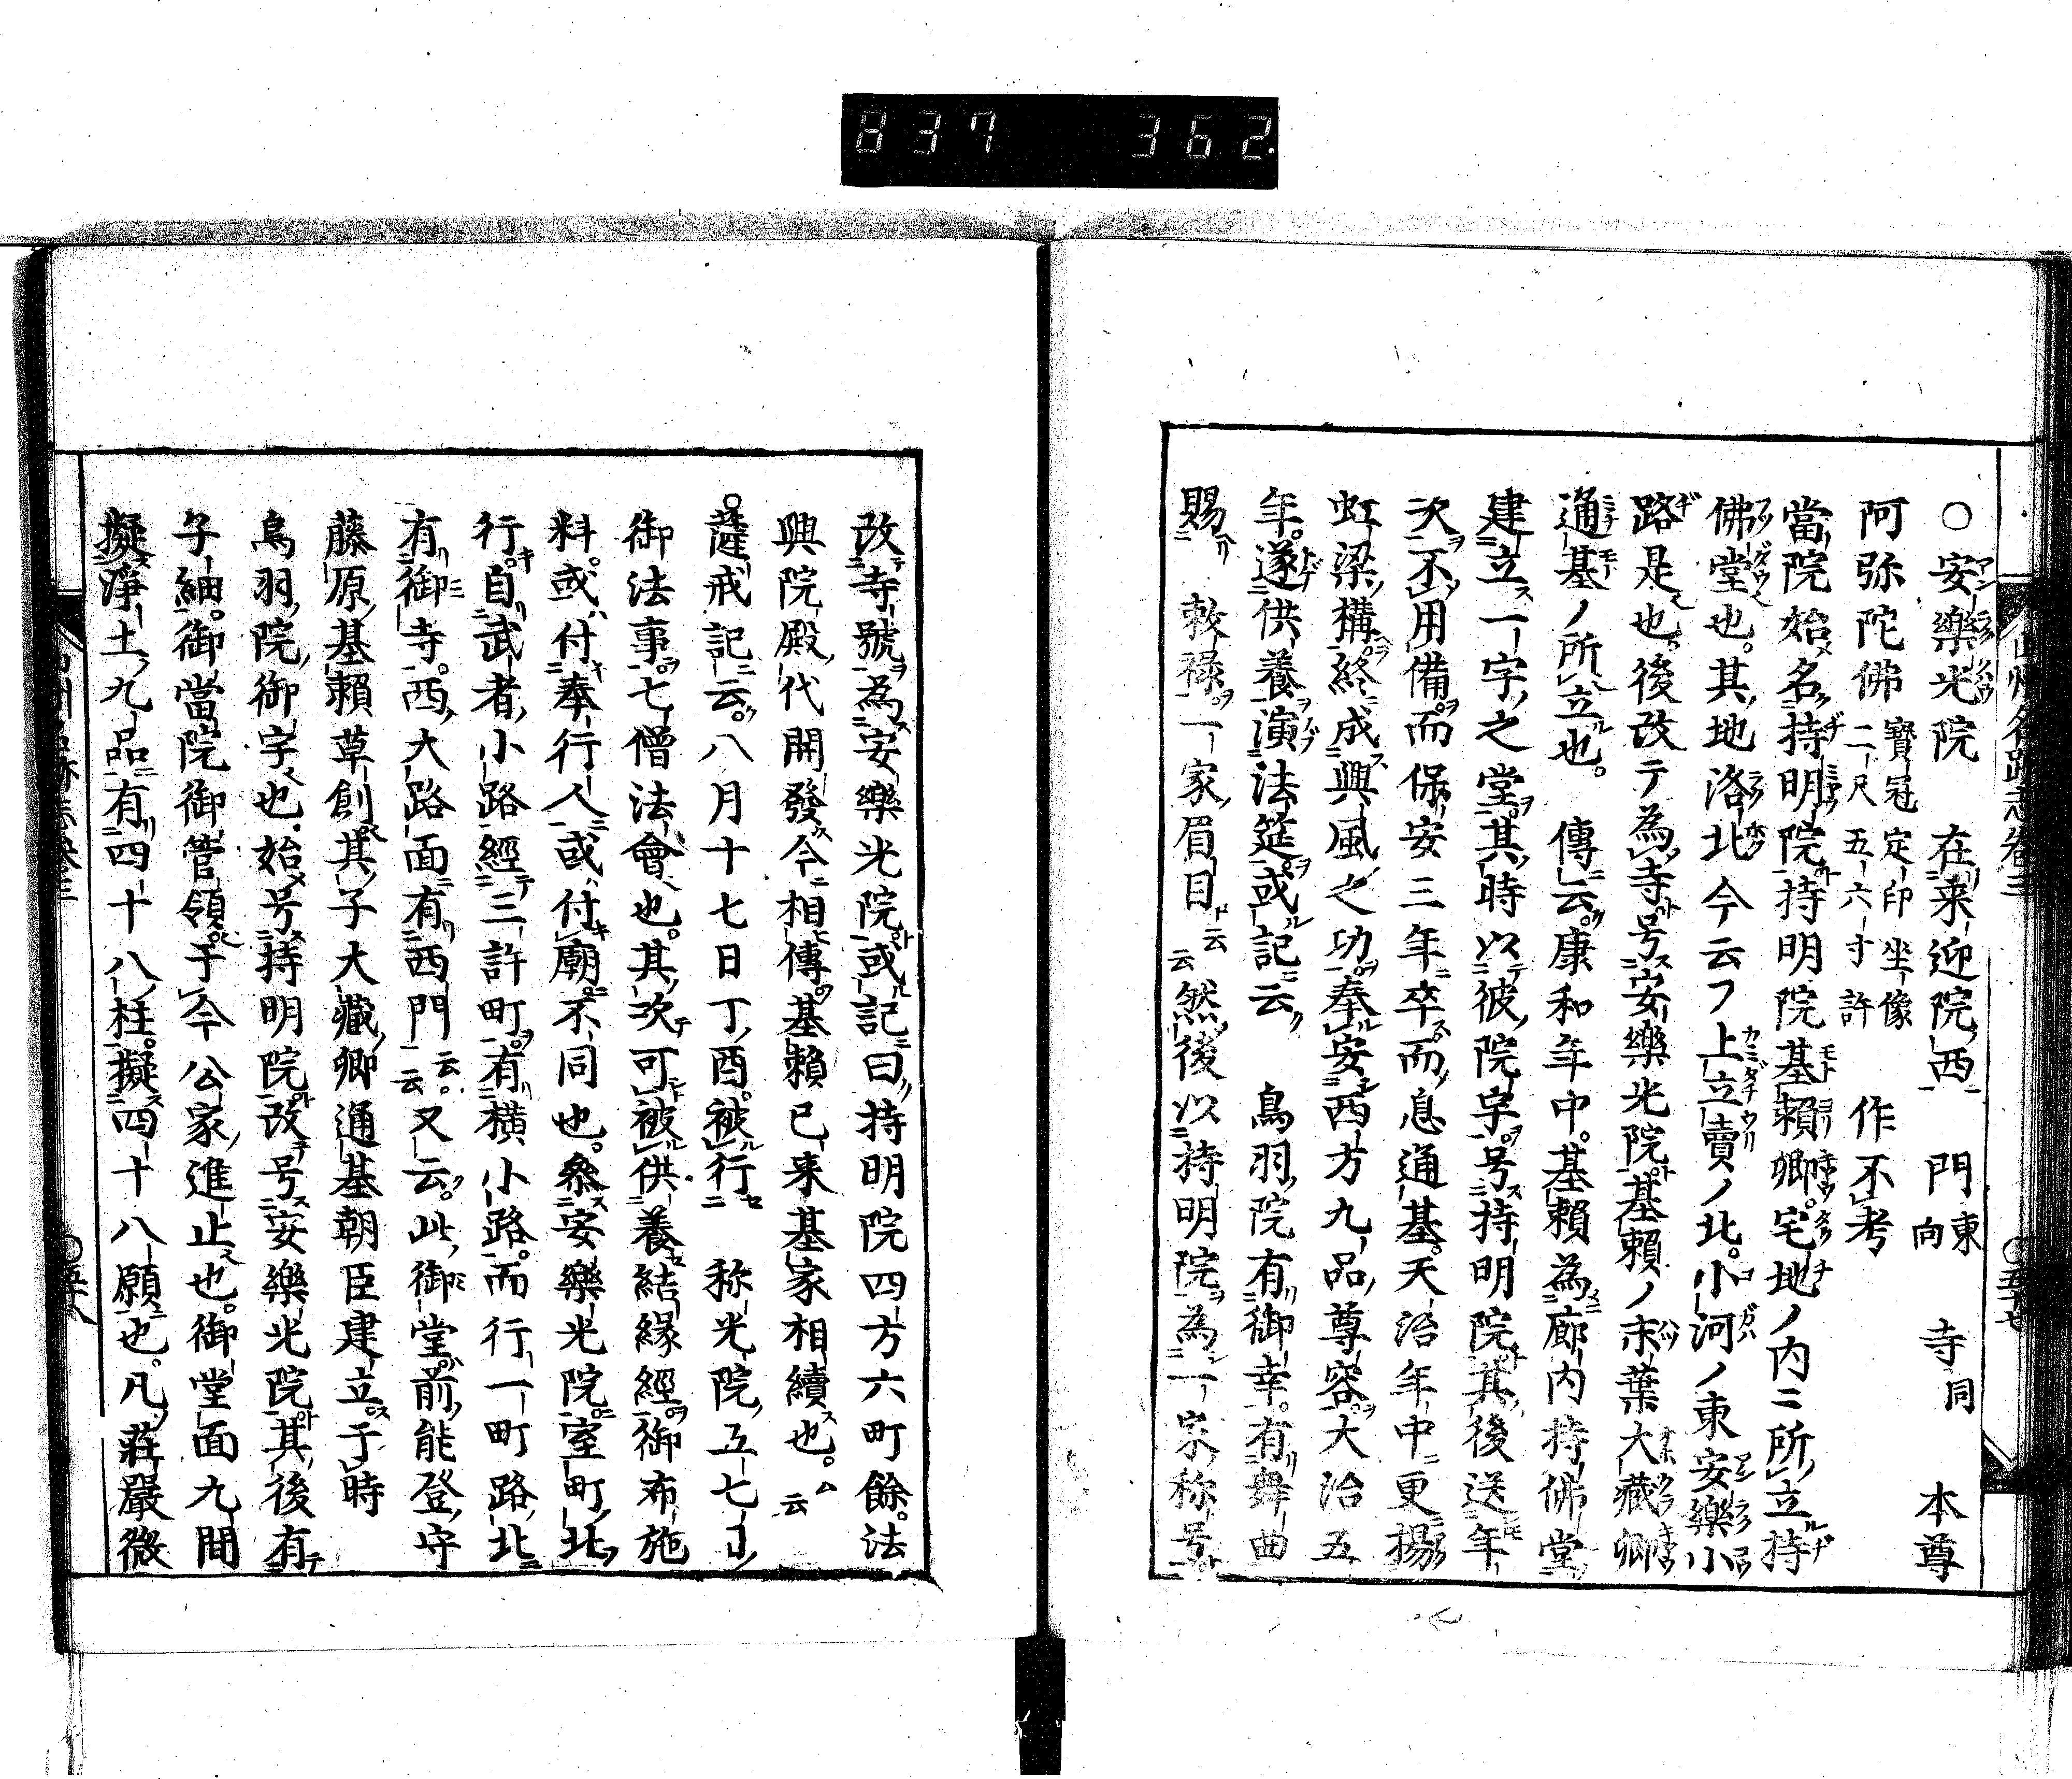 837 362
○安樂光院 在来迎院西 門東向 寺同 本尊
阿弥陀佛 寶冠定印坐像二尺五六寸許 作不考
當院始名持明院持明院基頼卿宅地ノ内ニ所立持
佛堂也其地洛北今云フ上立賣ノ北小河ノ東安樂小
路是也後改テ為寺号安樂光院基頼ノ末葉大藏卿
通基ノ所立也 傳云康和年中基頼為廊内持佛堂
建立一宇之堂其時以彼院宇号持明院其後送年
次不用備而保安三年卒而息通基天治年中更揚
虹梁構終成興風之功奉安西方九品尊容大治五
年遂供養演法筵或記云 鳥羽院有御幸有舞曲
賜 敕禄一家眉目云云然後以持明院為一家称号
改寺號為安樂光院或記曰持明院四方六町餘法
興院殿代開發今相傳基頼已来基家相續也云
薩戒記云八月十七日丁酉被行 称光院五七日
御法事七僧法會也其次可被供養結縁經御布施
料或付奉行人或付廟不同也参安樂光院室町北
行自武者小路經三許町有横小路而行一町路北
有御寺西大路面有西門云云又云此御堂前能登守
藤原基頼草創其子大藏卿通基朝臣建立于時
鳥羽院御宇也始号持明院改号安樂光院其後有
子細御當院御管領于今公家進止也御堂面九間
擬淨土九品有四十八柱擬四十八願也凡莊嚴微